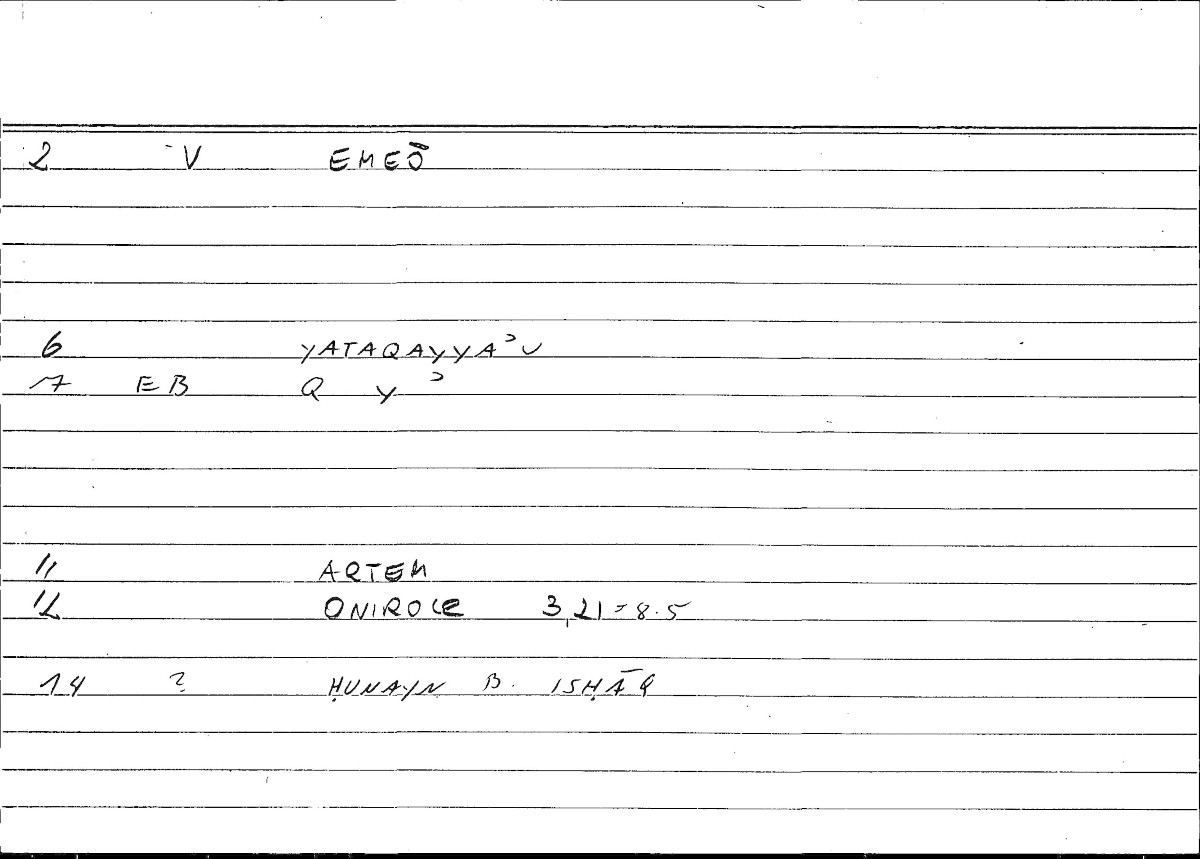 2 V EMEŌ
6 YATAQAYYAʾU
7 EB Q Y ʾ
11 ARTEM
12 ONIROCR 3,21=8.5
14 ? ḤUNAYN B. ISḤĀQ